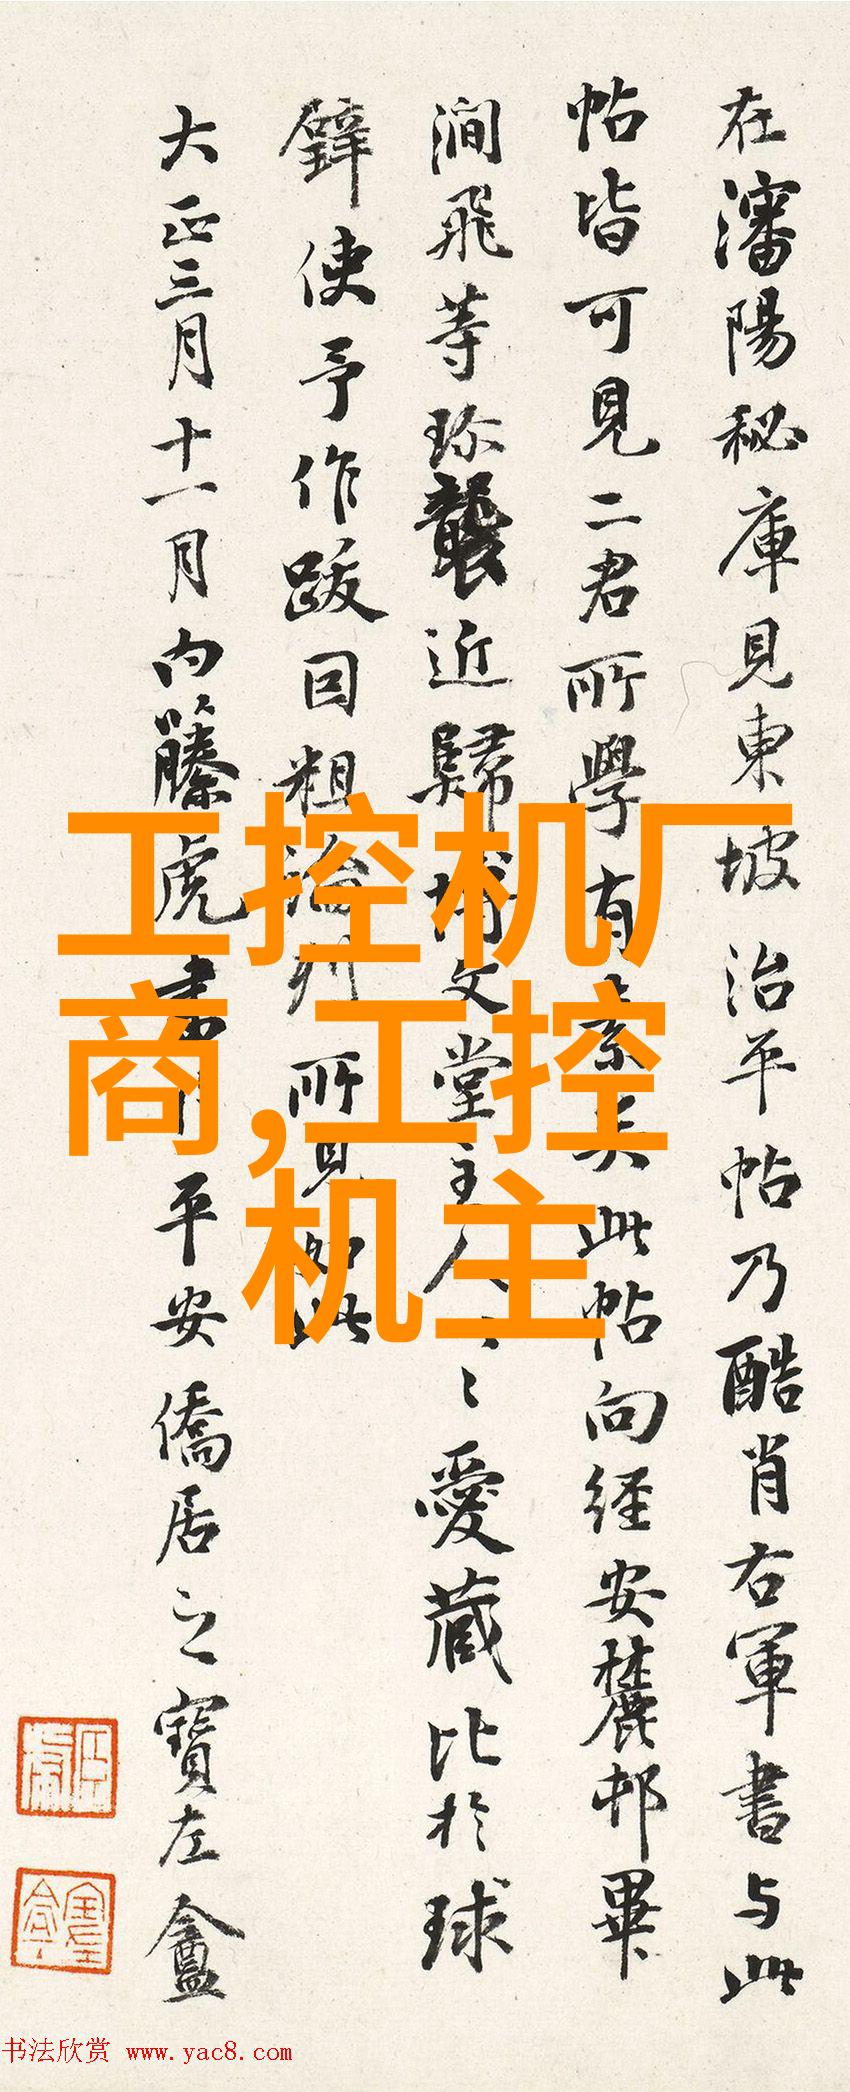 在瀋陽秘庫見東坡治平帖乃酷肖右軍書与此
帖皆可見二君所學有素矣此帖向経安麓邨畢
澗飛等珎襲近歸博文堂主人〻〻愛蔵比於球
鐸使予作跋因粗論列所見如此
大正三月十一月内藤虎書于平安僑居之寶左盦
工控机厂
商,工控
机主
书法欣赏 www.yac8.com